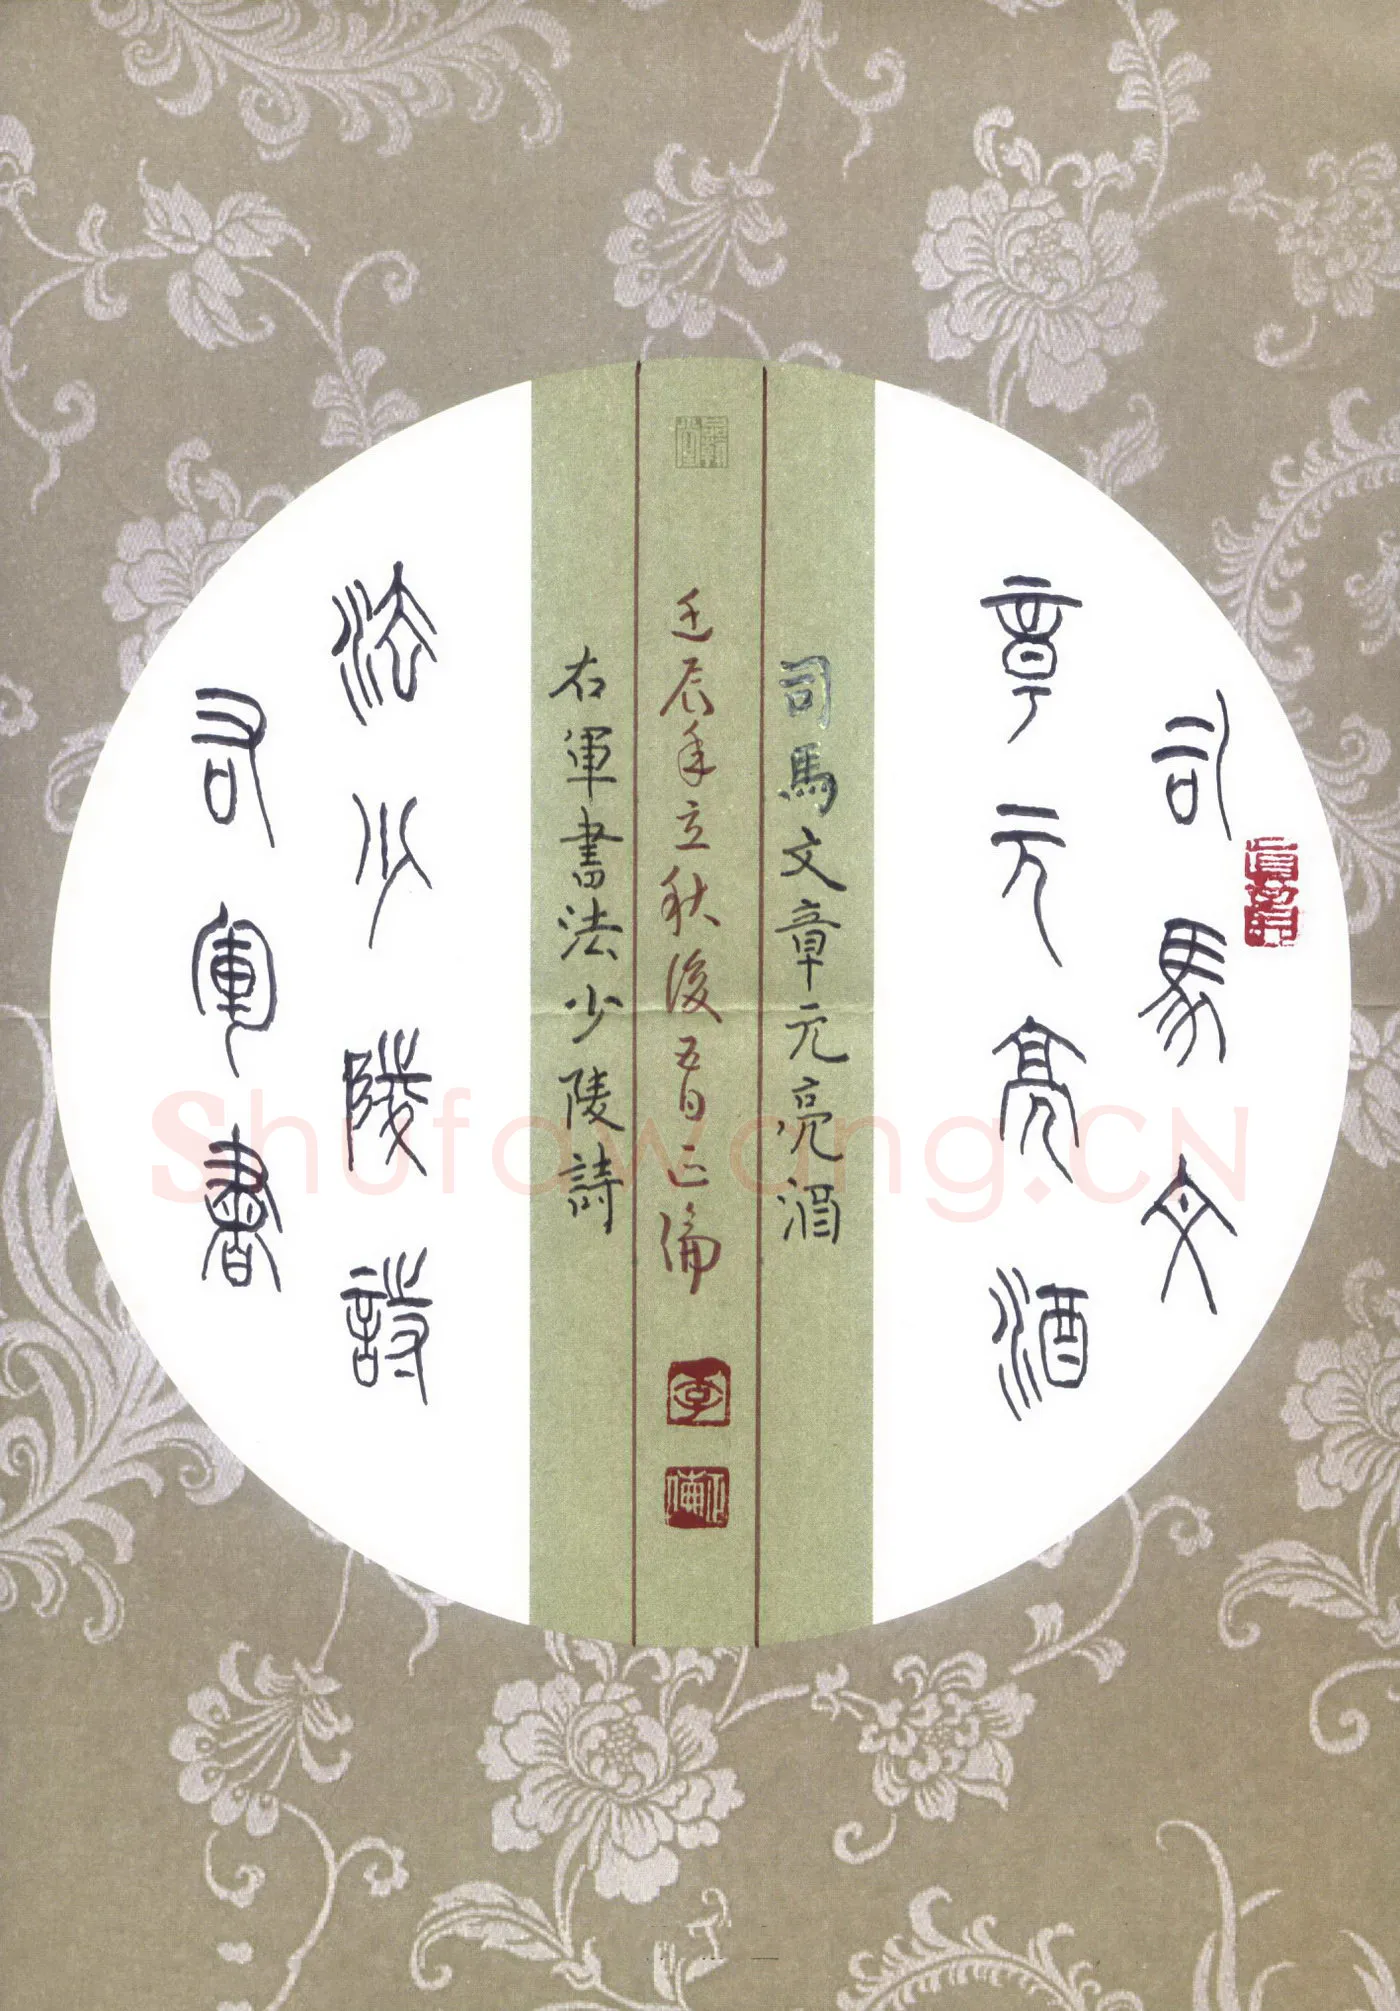 司馬文
章元亮酒
司馬文章元亮酒
壬辰年立秋後五日正倫
右軍書法少陵詩
法少陵詩
右軍書
李
Shufawang.CN